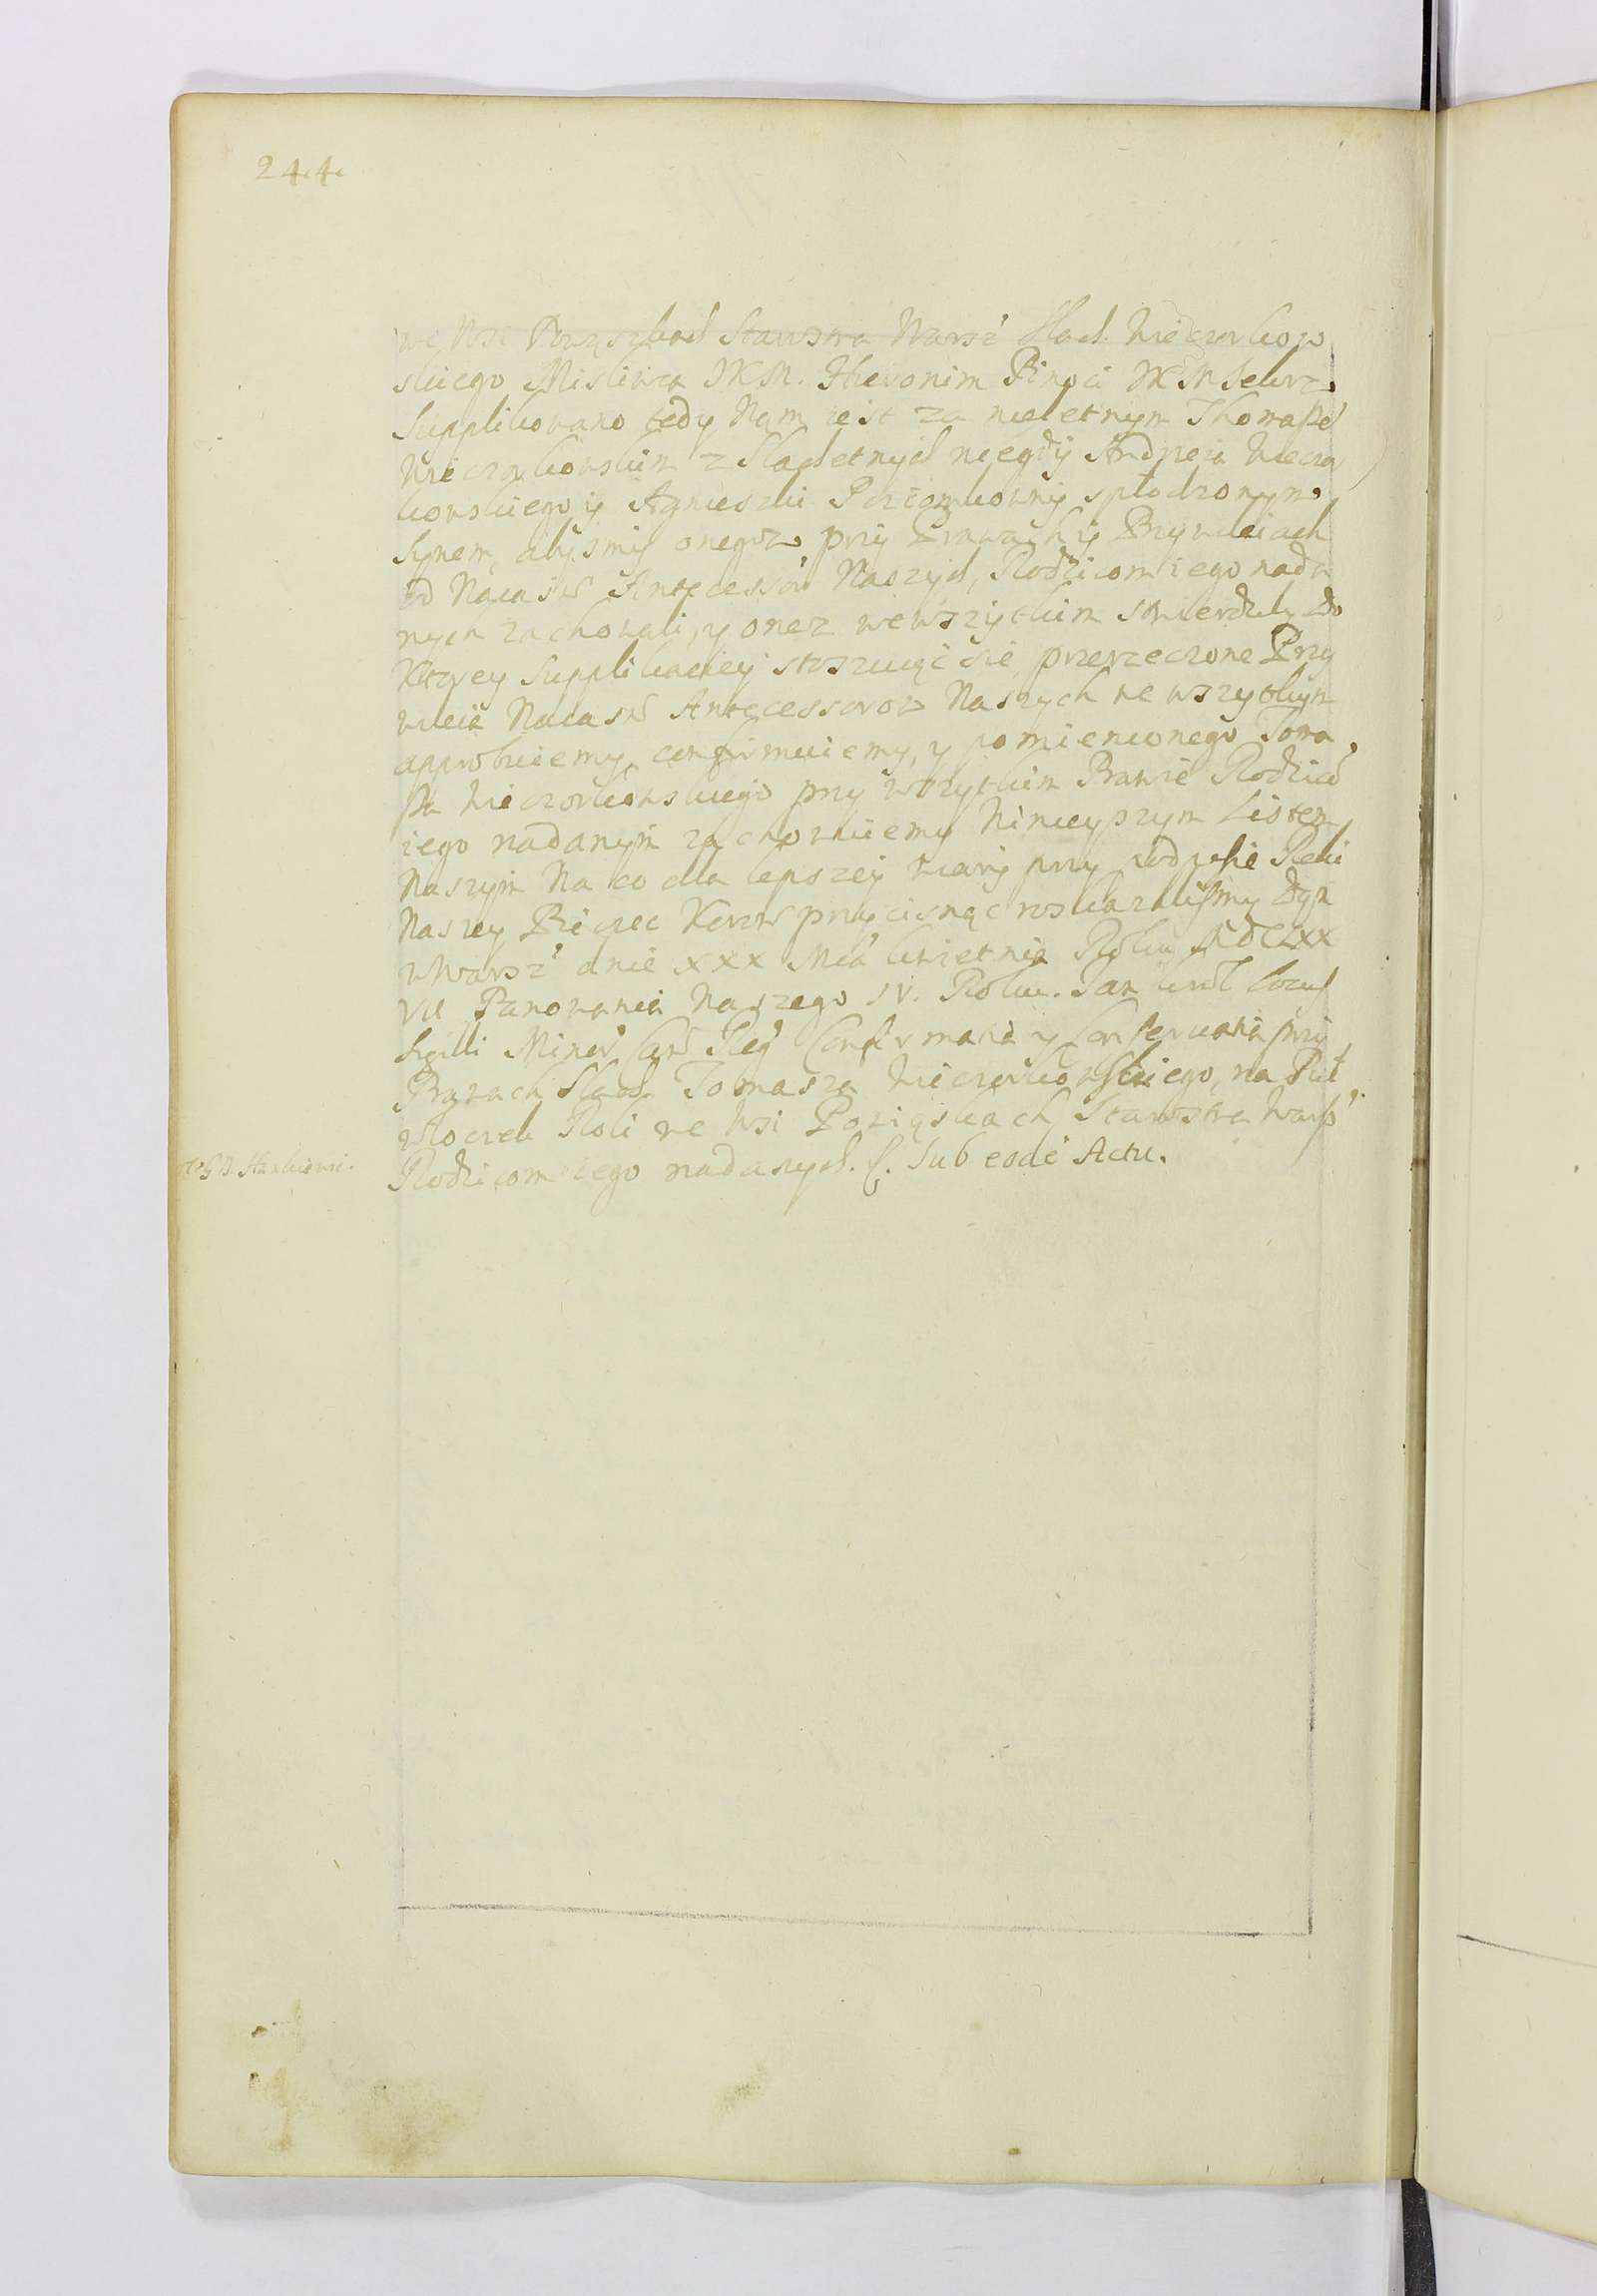 244.
we Wsi Powązkach Starostwa Warsz' Slach. Wieczorkow
skiego Mislivca JKM. Hieronim Pinoci JKM Sekrz.
Supplikowano tedy Nam iest za nieletnym Thomaße
Wieczorkowskim z Slachetnych niegdy Andrzeia Wieczor
kowskiego y Agnieszki splodzonym
Synem, abysmy onegoz przy Prawach y Przywileiach
od Naiasn Antecessorow Naszych, Rodzicom iego nada
nych zachowali, y onez wewszytkim stwierdzily Do
Ktorey Supplikaciey stosuiąc się przerzeczone Przy
wileia Naiasn Antecessorow Naszych we wszytkym
approbuiemy confirmuiemy, y pomienionego Toma
ßa Wieczorkowskiego przy wszytkim Prawie Rodzico
iego nadanym zachowuiemy Ninieyszym Listem
Naszym Na co dla lepszey wiary przy podpisie Reki
Naszey Pieczęc Koron przycisnąc roskazalismy Dan
w Warsz' dnie XXX Mca kwietnia Roku MDCLXX
VII Panowania Naszego IV. Roku. Jan Krol Locus
Sigilli Minor Can Reg Confirmatia y Conservatia przy
Prawach Slach. Tomasza Wieczorkowskiego, na Puł
wloczek Roli we Wsi Powiąskach Starostwa Warß'
Rodzicom iego nadanych. S. Sub eode Actu.